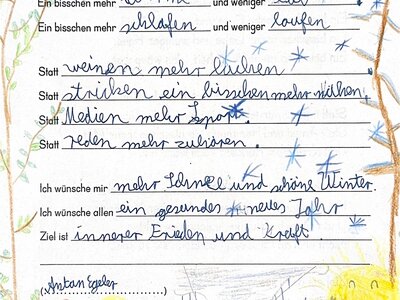 Ein bisschen mehr und weniger
Ein bisschen mehr schlafen und weniger laufen
Statt weinen mehr lachen
Statt stricken ein bisschen mehr nähen
Statt Medien mehr Sport.
Statt reden mehr zuhören.
Ich wünsche mir mehr Schnee und schöne Winter.
Ich wünsche allen ein gesundes neues Jahr
Ziel ist innerer Frieden und Kraft